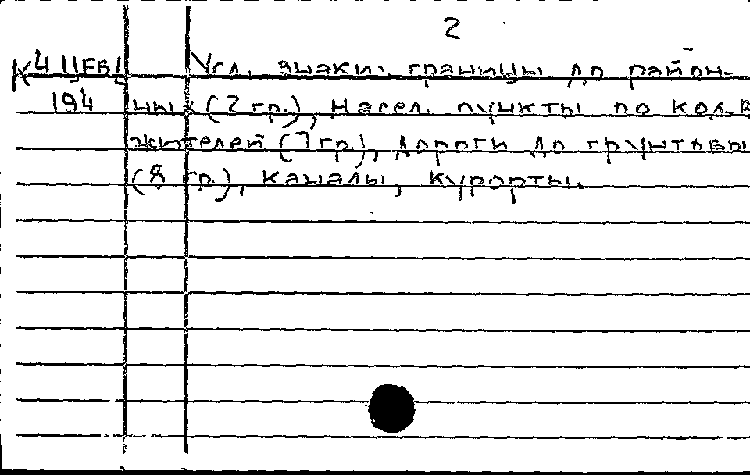 2
К4 Усл. знаки: границы до район-
194 ных (2 гр.), насел. пункты по кол.в
жителей (7 гр.), дороги до грунтовы
(8 гр.), каналы, курорты.